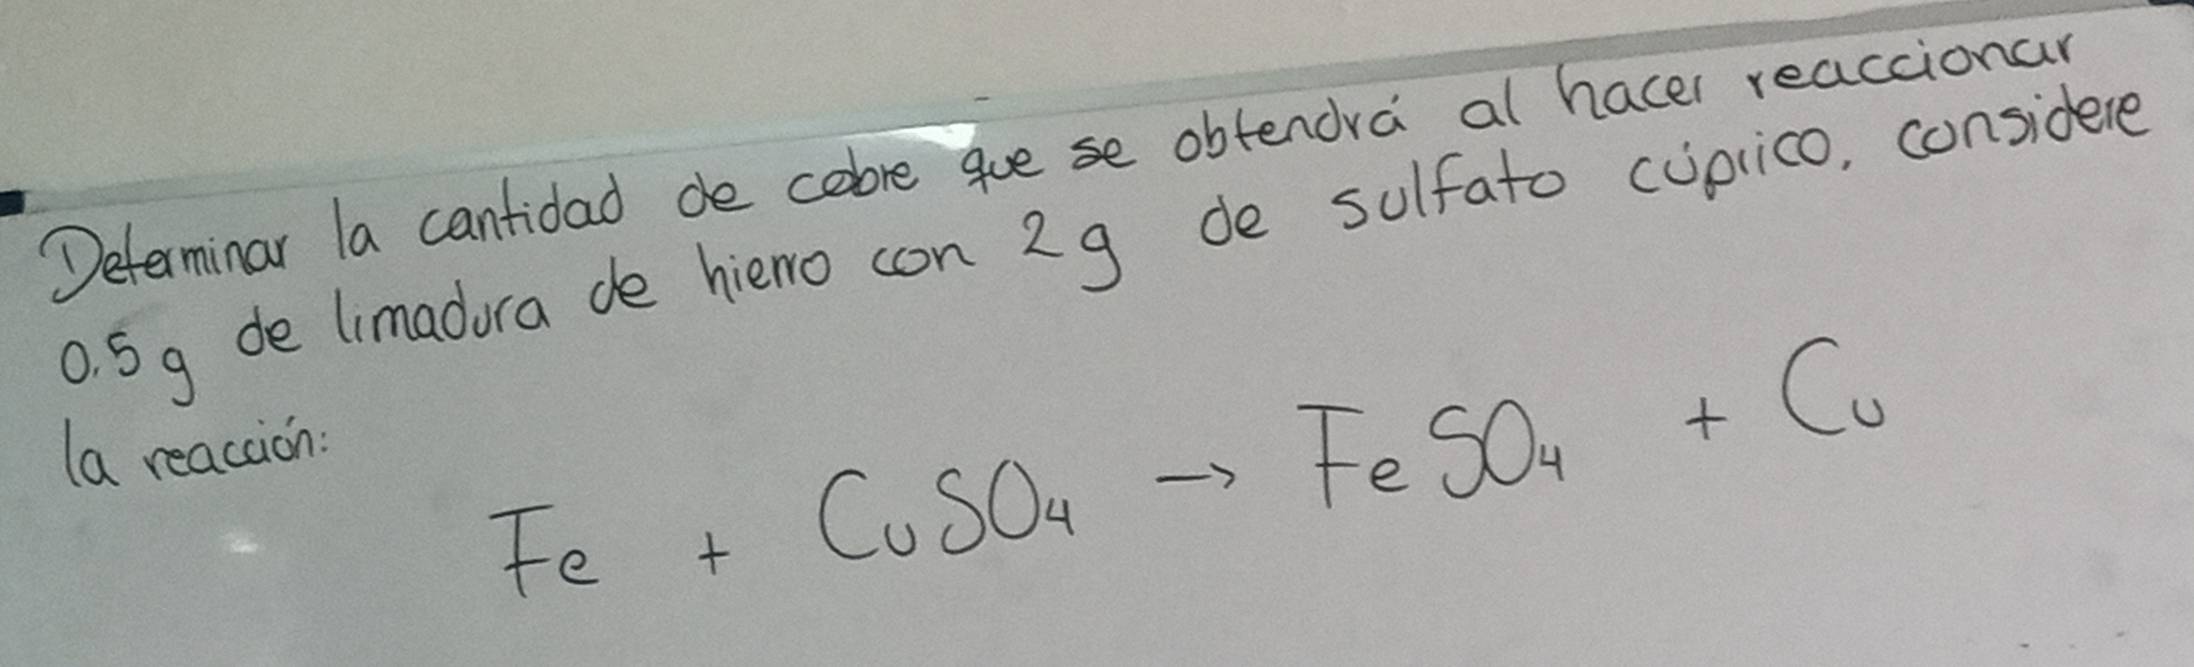 Determinar la cantidad de cobre que se obtendrá al hacer reaccionar
0.5g de limadura de hierro con 2g de sulfato cúprico, considere
la reacción:
Fe + CuSO₄ → FeSO₄ + Cu